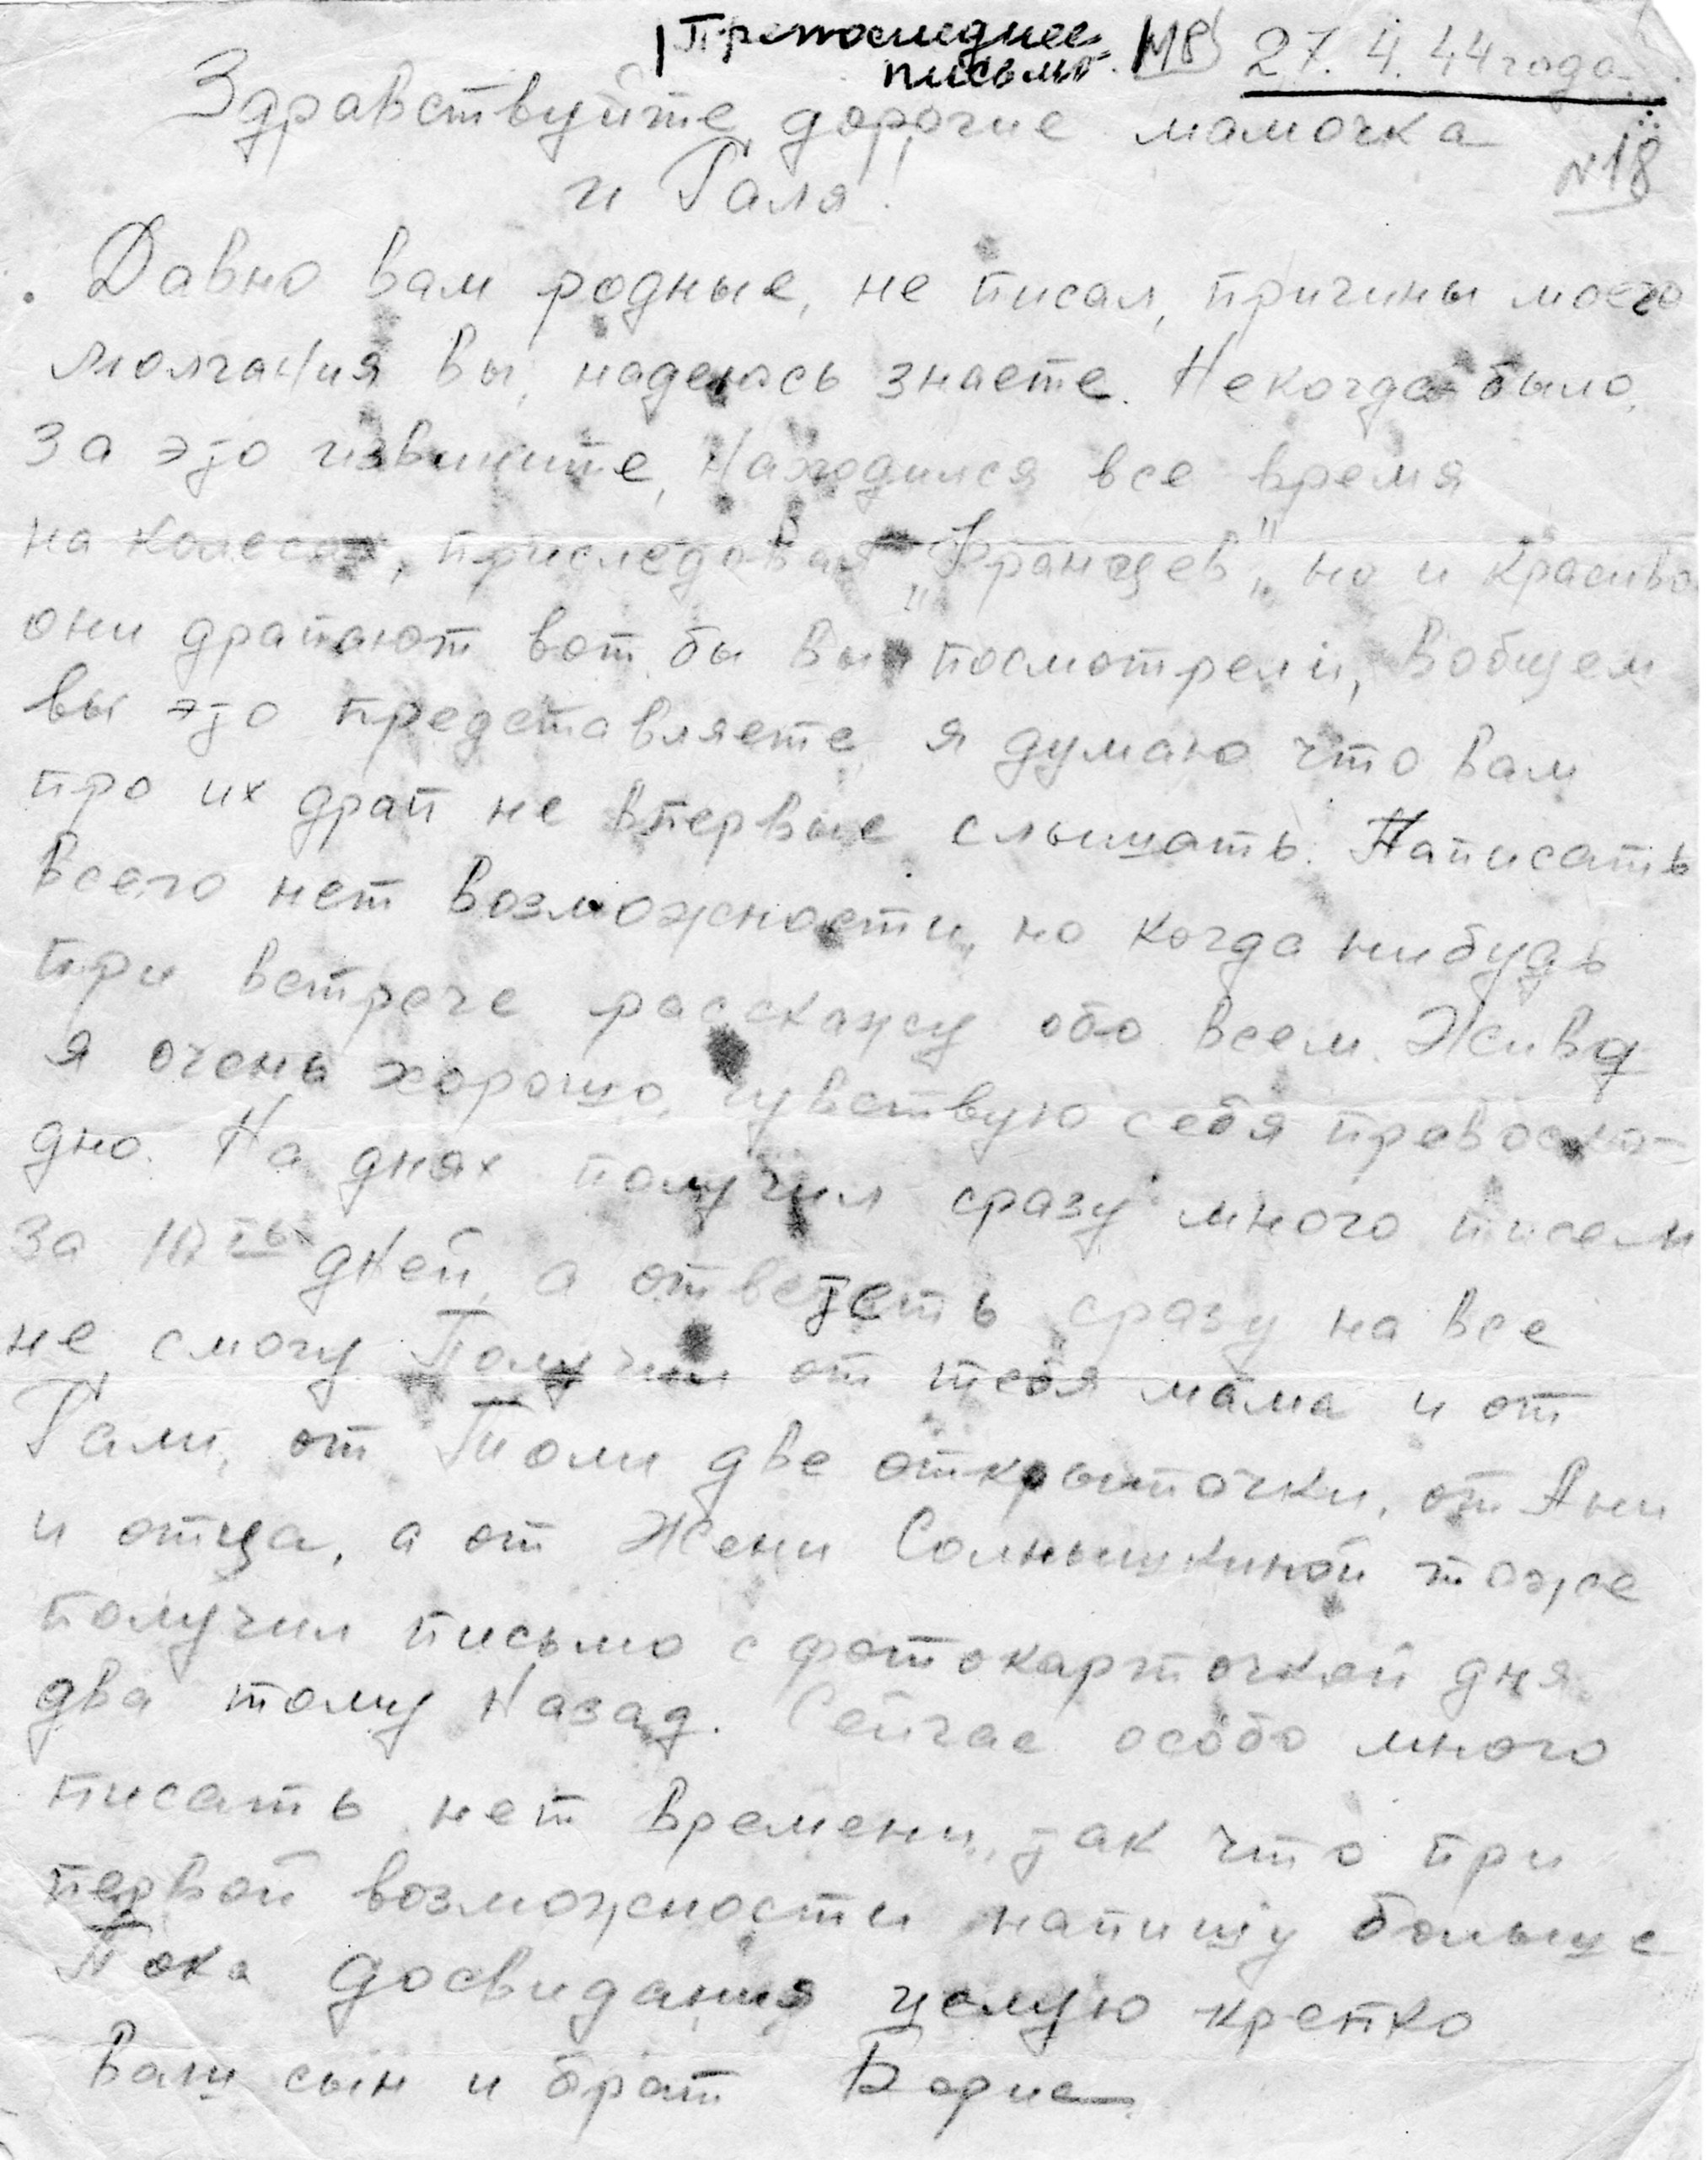 Препоследнее №18 27.4.44 года
письмо.
Здравствуйте, дорогие мамочка
№18
и Галя!
Давно вам родные, не писал, причины моего
молчания вы, надеюсь знаете. Некогда было,
за это извините, Находился все время
на колесах, приследовал „Францев", но и красиво
они драпают вот бы вы посмотрели, вобщем
вы это представляете, я думаю что вам
про их драп не впервые слышать. Написать
всего нет возможности, но когда нибудь
при встрече расскажу обо всем. Живу
я очень хорошо, чувствую себя превосхо-
дно. На днях получил сразу много писем
за 10ть дней, а ответеть сразу на все
не смогу Получил от тебя мама и от
Гали, от Толи две открыточки, от Ани
и отца, а от Жени Солнышкиной тоже
получил письмо с фотокарточкой дня
два тому Назад. Сейчас особо много
писать нет времени, так что при
первой возможности напишу больше
Пока досвидания целую крепко
Ваш сын и брат Борис